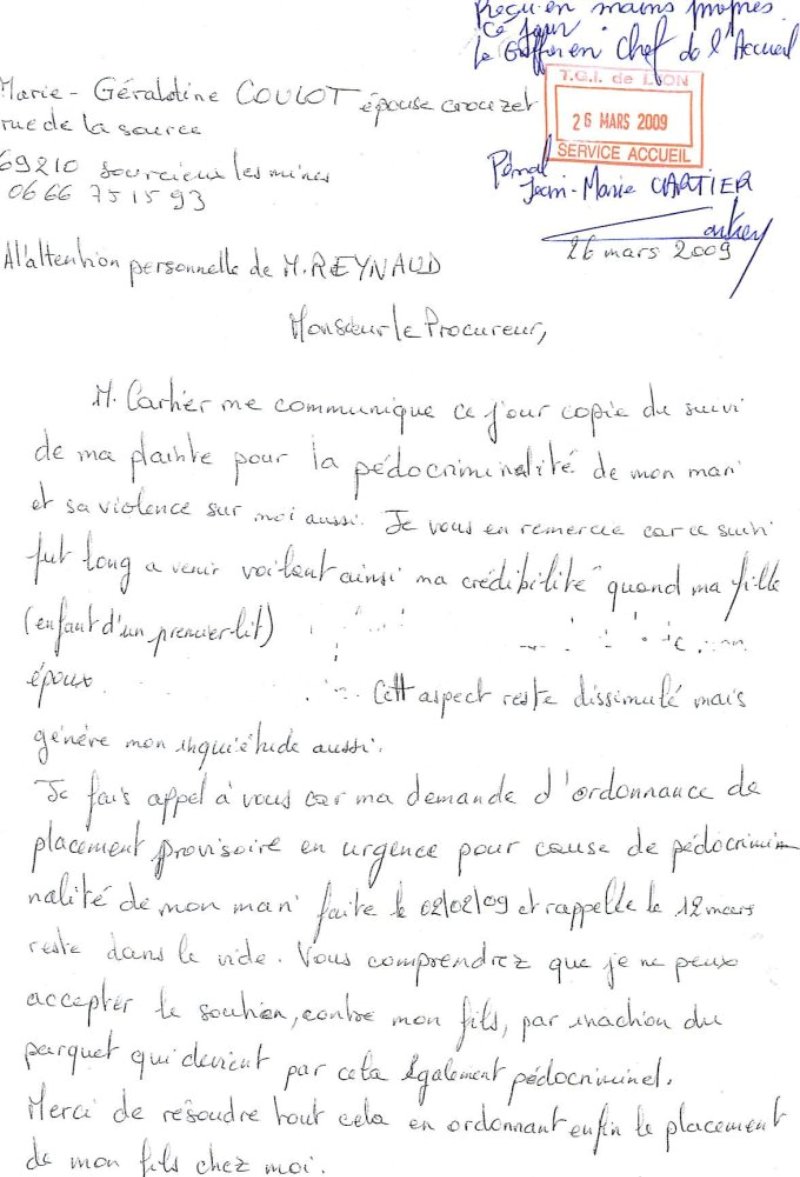 Reçu en mains propres
ce jour
le Greffier en Chef de l'Accueil
T.G.I. de LYON
26 MARS 2009
SERVICE ACCUEIL
Pénal
Jean-Marie CARTIER
Marie-Géraldine COULOT épouse crouzet
rue de la source
69210 sourcieux les mines
06 66 75 15 93
26 mars 2009
A l'attention personnelle de M. REYNAUD
Monsieur le Procureur,
M. Cartier me communique ce jour copie du suivi
de ma plainte pour la pédocriminalité de mon mari
et sa violence sur moi aussi. Je vous en remercie car ce suivi
fut long a venir voilant ainsi ma crédibilité quand ma fille
(enfant d'un premier lit)
époux
Cett aspect reste dissimulé mais
génère mon inquiétude aussi.
Je fais appel à vous car ma demande d'ordonnance de
placement provisoire en urgence pour cause de pédocrimi
nalité de mon mari faite le 02/02/09 et rappelle le 12 mars
reste dans le vide. Vous comprendrez que je ne peux
accepter le soutien, contre mon fils, par inaction du
parquet qui devient par cela également pédocriminel.
Merci de résoudre tout cela en ordonnant enfin le placement
de mon fils chez moi.